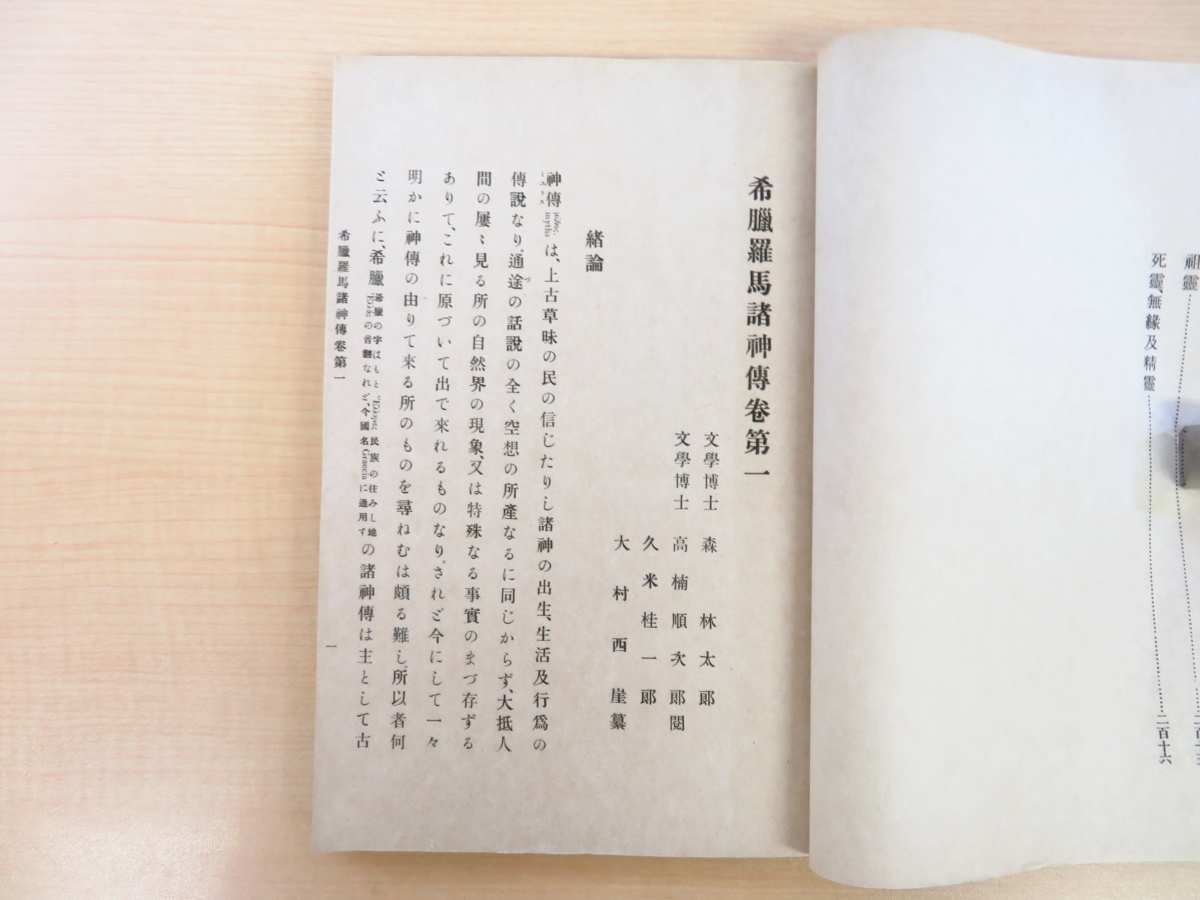 祖靈
死靈、無緣及精靈 二百十六
希臘羅馬諸神傳卷第一
文學博士 森林太郞
文學博士 高楠順次郞閱
久米桂一郞
大村西崖纂
緖論
神傳 μῦθος. myths は、上古草昧の民の信じたりし諸神の出生、生活及行爲の
傳說なり。通途の話說の全く空想の所產なるに同じからず、大抵人
間の屢〻見る所の自然界の現象、又は特殊なる事實のまづ存ずる
ありて、これに原づいて出で來れるものなり。されど今にして一々
明かに神傳の由りて來る所のものを尋ねむは頗る難し。所以者何
と云ふに、希臘 希臘の字はもと 民族の住みし地 の音翻なれど、今國名Graeciaに通用す の諸神傳は主として古
希臘羅馬諸神傳卷第一
一